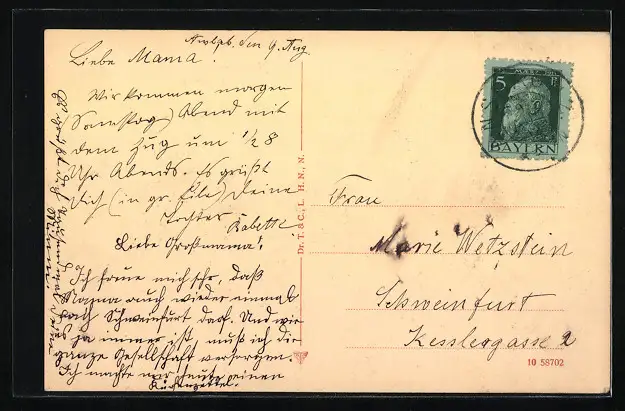 den 9. Aug.
Liebe Mama.
Wir kommen morgen
Samstag) Abend mit
dem Zug um 1/2 8
Uhr Abends. Es grüßt
Dich (in gr. Eile) Deine
Tochter
Babette
Liebe Großmama!
Ich freue mich sehr, daß
Mama auch wieder einmal
nach Schweinfurt darf. Und wie
es ja immer ist, muß ich die
ganze Gesellschaft versorgen.
Ich machte nur heute einen
Küchenzettel.
5 Pf
BAYERN
Frau
Marie Wetzstein
Schweinfurt
Kesslergasse 2
Dr. T. & C. L. H. N., N.
10 58702